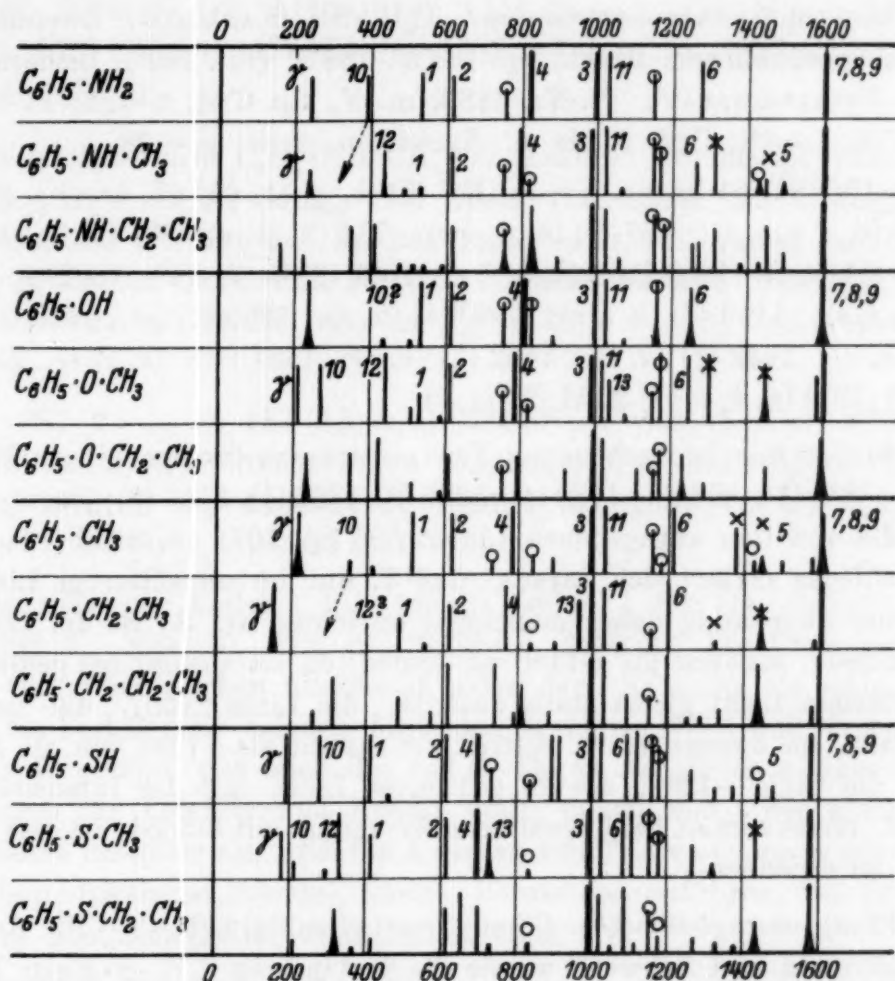 0 200 400 600 800 1000 1200 1400 1600
C₆H₅·NH₂ γ 10 1 2 4 3 11 6 7,8,9
C₆H₅·NH·CH₃ γ 12 1 2 4 3 11 6 × × 5
C₆H₅·NH·CH₂·CH₃
C₆H₅·OH 10? 1 2 4 3 11 6 7,8,9
C₆H₅·O·CH₃ γ 10 12 1 2 4 3 11 13 6
C₆H₅·O·CH₂·CH₃
C₆H₅·CH₃ γ 10 1 2 4 3 11 6 × × 5 7,8,9
C₆H₅·CH₂·CH₃ γ 12? 1 2 4 13 3 11 6 ×
C₆H₅·CH₂·CH₂·CH₃
C₆H₅·SH γ 10 1 2 4 3 6 5 7,8,9
C₆H₅·S·CH₃ γ 10 12 1 2 4 13 3 6
C₆H₅·S·CH₂·CH₃
0 200 400 600 800 1000 1200 1400 1600